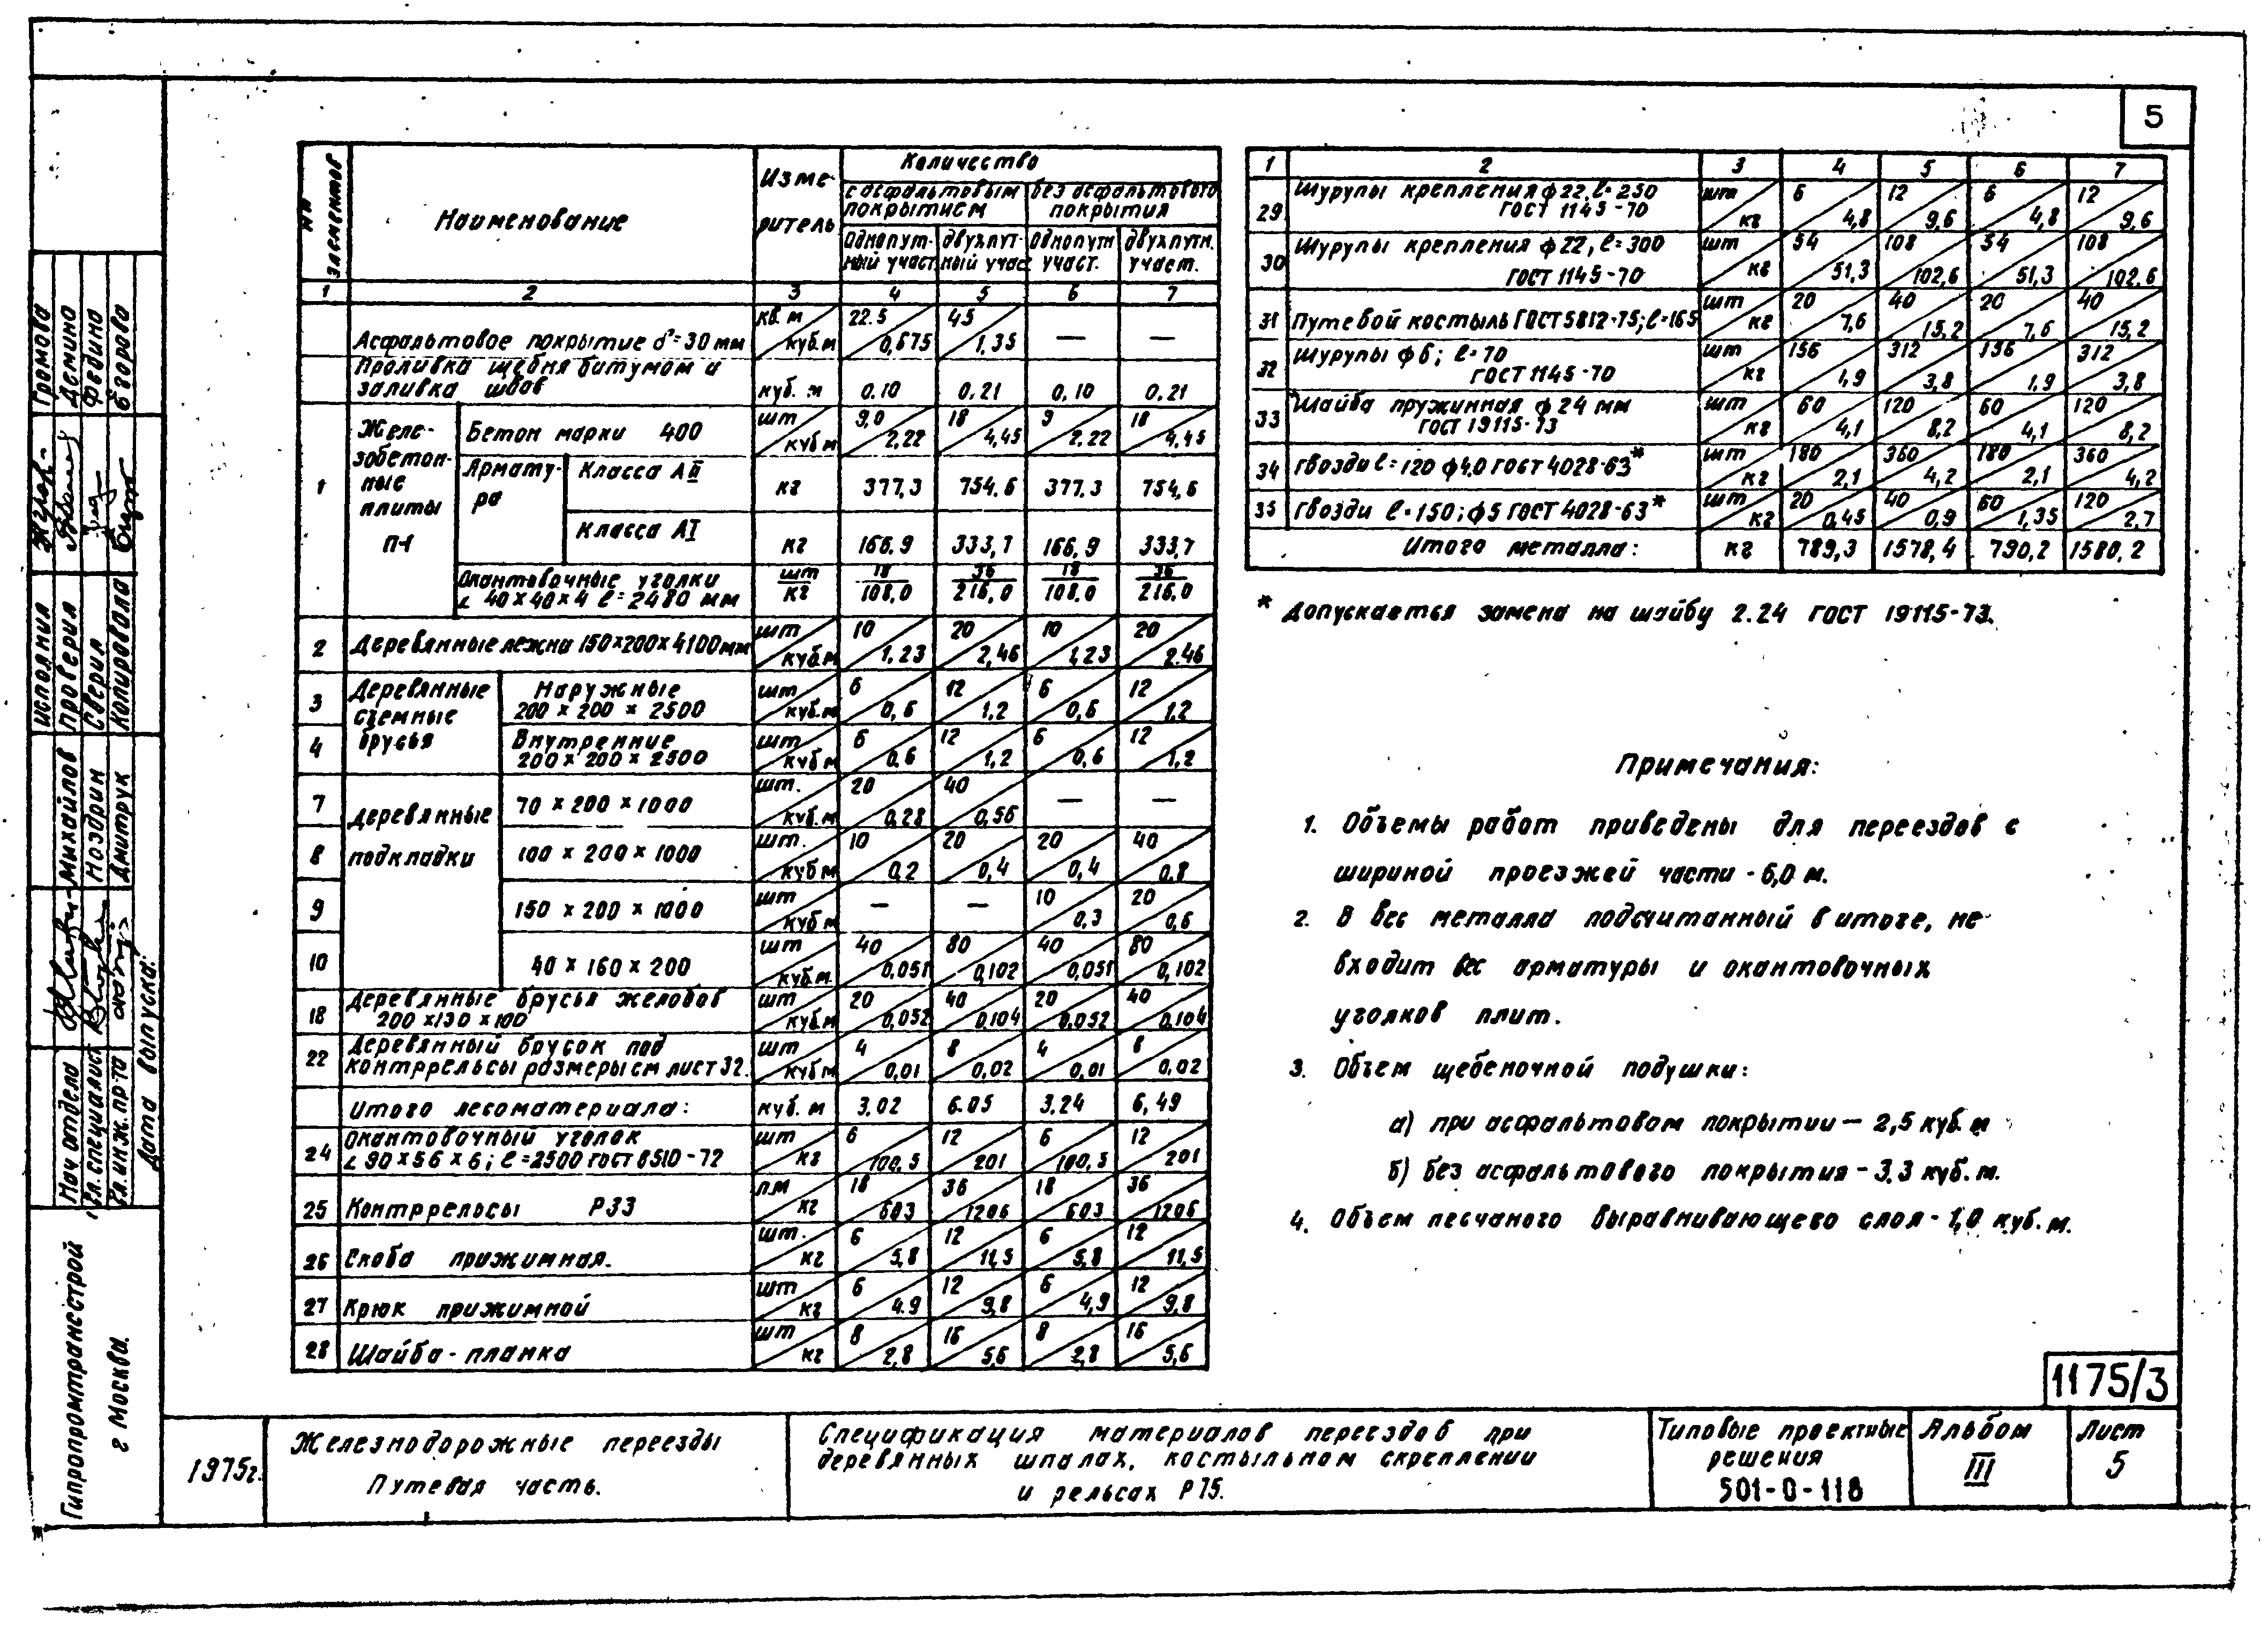 5
NN элементов | Наименование | Измеритель | Количество
с асфальтовым покрытием | без асфальтового покрытия
Однопутный участ. | двухпутный учас | Однопутн участ. | двухпутн. участ.
1 | 2 | 3 | 4 | 5 | 6 | 7
Асфальтовое покрытие d=30 мм | кв.м / куб.м | 22.5 / 0,675 | 45 / 1,35 | — | —
Проливка щебня битумом и заливка швов | куб.м | 0.10 | 0,21 | 0,10 | 0,21
1 | Железобетонные плиты П-1 | Бетон марки 400 | шт / куб.м | 9,0 / 2,22 | 18 / 4,45 | 9 / 2.22 | 18 / 4,45
Арматура | Класса АII | кг | 377,3 | 754.6 | 377.3 | 754,6
Класса АI | кг | 166.9 | 333,7 | 166,9 | 333,7
Окантовочные уголки ∠ 40×40×4 ℓ=2480 мм | шт / кг | 18 / 108,0 | 36 / 216,0 | 18 / 108.0 | 36 / 216.0
2 | Деревянные лежни 150×200×4100мм | шт / куб.м | 10 / 1,23 | 20 / 2,46 | 10 / 1,23 | 20 / 2.46
3 | Деревянные съемные брусья | Наружные 200 × 200 × 2500 | шт / куб.м | 6 / 0,6 | 12 / 1.2 | 6 / 0,6 | 12 / 1,2
4 | Внутренние 200 × 200 × 2500 | шт / куб м | 6 / 0.6 | 12 / 1,2 | 6 / 0,6 | 12 / 1,2
7 | деревянные подкладки | 70 × 200 × 1000 | шт. / куб.м | 20 / 0,28 | 40 / 0,56 | — | —
8 | 100 × 200 × 1000 | шт. / куб м | 10 / 0,2 | 20 / 0,4 | 20 / 0,4 | 40 / 0.8
9 | 150 × 200 × 1000 | шт / куб м | — | — | 10 / 0,3 | 20 / 0,6
10 | 40 × 160 × 200 | шт / куб.м | 40 / 0,051 | 80 / 0,102 | 40 / 0,051 | 80 / 0,102
18 | Деревянные брусья желобов 200 ×130 ×100 | шт / куб.м | 20 / 0,052 | 40 / 0.104 | 20 / 0.052 | 40 / 0.104
22 | Деревянный брусок под контррельсы размеры см лист 32. | шт / куб м | 4 / 0,01 | 8 / 0,02 | 4 / 0,01 | 8 / 0,02
Итого лесоматериала: | куб. м | 3.02 | 6.05 | 3.24 | 6,49
24 | Окантовочный уголок ∠ 90×56×6; ℓ=2500 гост 8510-72 | шт / кг | 6 / 100,5 | 12 / 201 | 6 / 100,5 | 12 / 201
25 | Контррельсы Р33 | пм / кг | 18 / 603 | 36 / 1206 | 18 / 603 | 36 / 1206
26 | Скоба прижимная. | шт. / кг | 6 / 5,8 | 12 / 11,5 | 6 / 5,8 | 12 / 11,5
27 | Крюк прижимной | шт / кг | 6 / 4.9 | 12 / 9,8 | 6 / 4,9 | 12 / 9,8
28 | Шайба-планка | шт / кг | 8 / 2,8 | 16 / 5,6 | 8 / 2,8 | 16 / 5,6
1 | 2 | 3 | 4 | 5 | 6 | 7
29 | Шурупы крепления ф22, ℓ=230 ГОСТ 1145-70 | шт / кг | 6 / 4,8 | 12 / 9,6 | 6 / 4,8 | 12 / 9,6
30 | Шурупы крепления ф22, ℓ=300 ГОСТ 1145-70 | шт / кг | 54 / 51,3 | 108 / 102,6 | 54 / 51,3 | 108 / 102.6
31 | Путевой костыль ГОСТ 5812-75; ℓ=165 | шт / кг | 20 / 7,6 | 40 / 15,2 | 20 / 7,6 | 40 / 15,2
32 | Шурупы ф6; ℓ=70 ГОСТ 1145-70 | шт / кг | 156 / 1,9 | 312 / 3,8 | 156 / 1,9 | 312 / 3,8
33 | Шайба пружинная ф24 мм ГОСТ 19115-73 | шт / кг | 60 / 4,1 | 120 / 8,2 | 60 / 4,1 | 120 / 8,2
34 | Гвозди ℓ=120 ф4.0 ГОСТ 4028-63* | шт / кг | 180 / 2,1 | 360 / 4,2 | 180 / 2,1 | 360 / 4,2
35 | Гвозди ℓ=150; ф5 ГОСТ 4028-63* | шт / кг | 20 / 0,45 | 40 / 0,9 | 60 / 1,35 | 120 / 2,7
Итого металла: | кг | 789,3 | 1578,4 | 790,2 | 1580,2
* Допускается замена на шайбу 2.24 ГОСТ 19115-73.
Примечания:
1. Объемы работ приведены для переездов с
шириной проезжей части - 6,0 м.
2. В вес металла подсчитанный в итоге, не
входит вес арматуры и окантовочных
уголков плит.
3. Объем щебеночной подушки:
а) при асфальтовом покрытии — 2,5 куб. м
б) без асфальтового покрытия - 3,3 куб. м.
4. Объем песчаного выравнивающего слоя - 1,0 куб. м.
1175/3
Исполнил Громова
Проверил Демина
Сверил Федина
Копировала Егорова
Нач отдела Михайлов
Гл. специалист Ноздрин
Гл. инж. пр-та Дмитрук
Дата выпуска:
Гипропромтрансстрой
г Москва.
1975г.
Железнодорожные переезды
Путевая часть.
Спецификация материалов переездов при
деревянных шпалах, костыльном скреплении
и рельсах Р75.
Типовые проектные
решения
501-0-118
Альбом
III
Лист
5